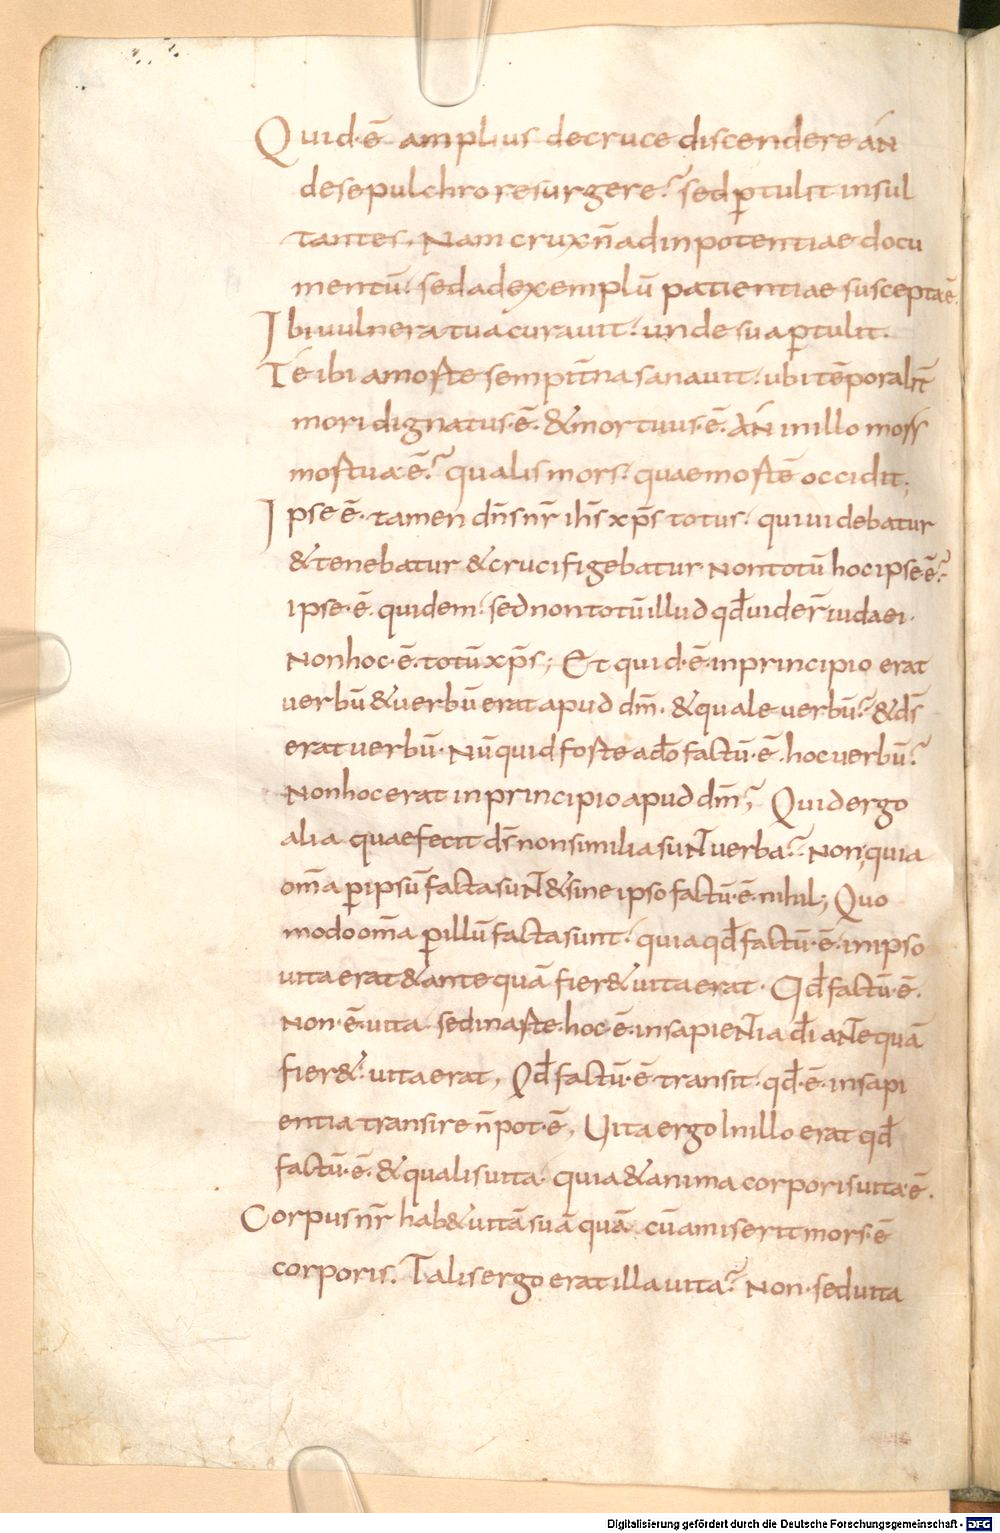 Quid·ē amplius decruce discendere án
desepulchro resurgere? sed ꝑtulit insul
tantes, Nam crux n̄ ad inpotentiae docu
mentū· sed ad exemplū patientiae suscepta ē·
Ibi uulnera tua curauit· unde sua ꝑtulit·
Té ibi a morte sempit̄na sanauit· ubi tēporalit̄
mori dignatus·ē· & mortuus·ē· Án in illo mors
mortua·ē? qualis mors· quae mortē occidit;
Ipse ē· tamen dn̄s nr̄ ih̄s xp̄s totus· qui uidebatur
& tenebatur & crucifigebatur Non totū hoc ipse·ē?
ipse·ē· quidem· sed non totū illud qd̄ uider̄ iudaei·
Non hoc·ē· totū xp̄s; Et quid·ē· in principio erat
uerbū & uerbū erat apud dm̄· & quale uerbū? & ds̄
erat uerbū· Nūquid forte a do factū·ē· hoc uerbū?
Non hoc erat in principio apud dm̄; Quid ergo
alia quae fecit ds̄ non similia sunt uerba? Non; quia
om̄a ꝑ ipsū facta sunt & sine ipso factū·ē· nihil; Quo
modo om̄a ꝑ illū facta sunt· quia qd̄ factū·ē· in ipso
uita erat & ante quā fier& uita erat· Qd̄ factū·ē·
Non·ē· uita· sed in arte· hoc·ē· in sapientia dī ante quā
fier&· uita erat, Qd̄ factū·ē· transit· qd̄·ē· in sapi
entia transire n̄ pot·ē, Uita ergo In illo erat qd̄
factū·ē· & qualis uita· quia & anima corporis uita·ē·
Corpus nr̄ hab& uitā suā quā· cū amiserit mors·ē
corporis· Talis ergo erat illa uita? Non· sed uita
Digitalisierung gefördert durch die Deutsche Forschungsgemeinschaft - DFG